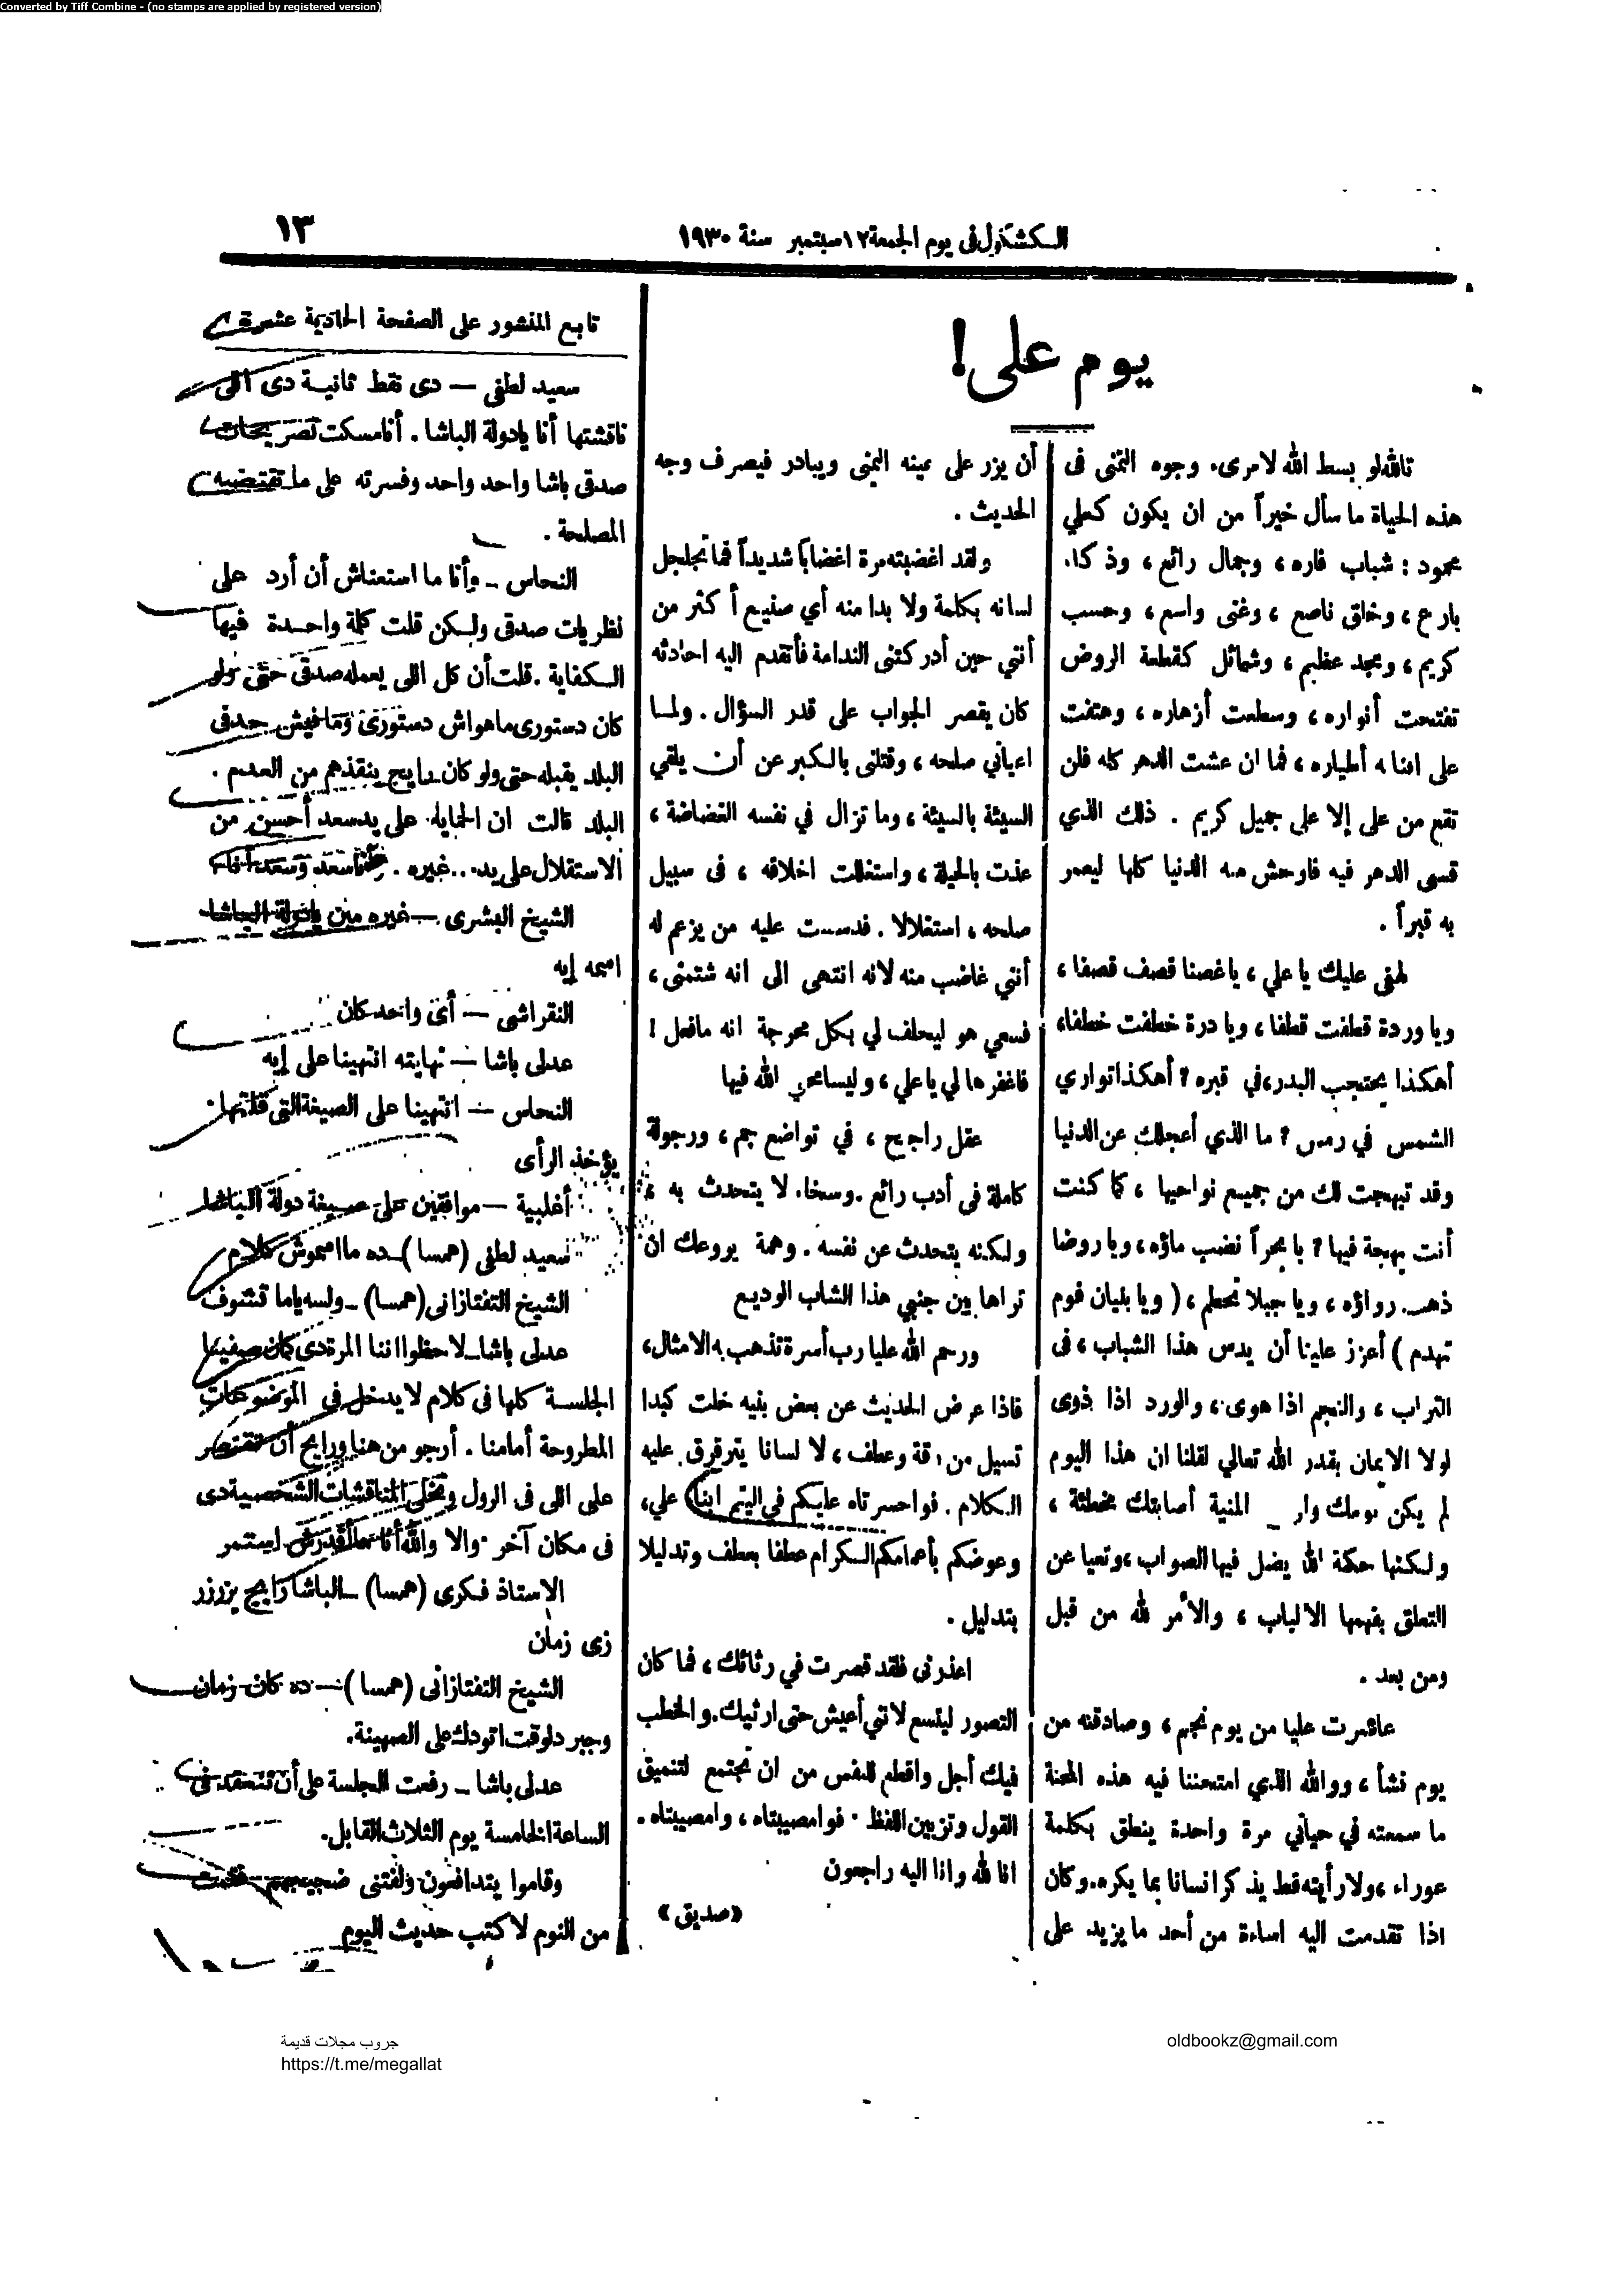 Converted by Tiff Combine - (no stamps are applied by registered version)
الكشكول في يوم الجمعة ١٢ سبتمبر سنة ١٩٣٠
١٣
يوم على !
تالله لو بسط الله لامرىء وجوه التمنى فى
هذه الحياة ما سأل خيراً من ان يكون كعلي
محمود : شباب فاره ، وجمال رائع ، وذكاء
بارع ، وخلق ناصع ، وغنى واسع ، وحسب
كريم ، ومجد عظيم ، وشمائل كقطعة الروض
تفتحت أنواره ، وسطعت أزهاره ، وهتفت
على افنانه أطياره ، فما ان عشت الدهر كله فلن
تقع من على إلا على جميل كريم . ذلك الذي
قسى الدهر فيه فاوحش منه الدنيا كلها ليعمر
به قبراً .
لهفى عليك يا علي ، يا غصنا قصف قصفا ،
ويا وردة قطفت قطفا ، ويا درة خطفت خطفا ،
أهكذا يحتجب البدر ، في قبره ؟ أهكذا تواري
الشمس في رمس ؟ ما الذي أعجلك عن الدنيا
وقد تبهجت لك من جميع نواحيها ، كما كنت
أنت بهجة فيها ؟ يا بحراً نضب ماؤه ، ويا روضا
ذهب رواؤه ، ويا جبلا تحطم ، ( ويا بنيان قوم
تهدم ) أعزز علينا أن يدس هذا الشباب ، فى
التراب ، والنجم اذا هوى ، والورد اذا ذوى
لولا الايمان بقدر الله تعالي لقلنا ان هذا اليوم
لم يكن يومك وان المنية أصابتك مخطئة ،
ولكنها حكمة الله يضل فيها الصواب ، وتعيا عن
التعلق بفهمها الألباب ، والأمر لله من قبل
ومن بعد .
عاشرت عليا من يوم نجم ، وصادقته من
يوم نشأ ، ووالله الذي امتحننا فيه هذه المحنة
ما سمعته في حياتي مرة واحدة ينطق بكلمة
عوراء ، ولا رأيته قط يذكر انسانا بما يكره . وكان
اذا تقدمت اليه اساءة من أحد ما يزيد على
أن يزر على عينه اليمنى ويبادر فيصرف وجه
الحديث .
ولقد اغضبته مرة اغضاباً شديداً فما تجلجل
لسانه بكلمة ولا بدا منه أي صنيع أكثر من
أنني حين أدركتنى الندامة فأتقدم اليه احادثه
كان يقصر الجواب على قدر السؤال . ولما
اعياني صلحه ، وقتلنى بالكبر عن أن يلقي
السيئة بالسيئة ، وما تزال في نفسه الغضاضة ،
عذت بالحيلة ، واستغللت اخلاقه ، فى سبيل
صلحه ، استغلالا . فدسست عليه من يزعم له
أنني غاضب منه لانه انتهى الى انه شتمنى ،
فسعي هو ليحلف لي بكل محرجة انه ما فعل !
فاغفرها لي يا علي ، وليسامحني الله فيها
عقل راجح ، في تواضع جم ، ورجولة
كاملة فى أدب رائع . وسخاء لا يتحدث به ،
ولكنه يتحدث عن نفسه . وهمة يروعك ان
تراها بين جنبي هذا الشاب الوديع
ورحم الله عليا رب أسرة تذهب به الامثال ،
فاذا عرض الحديث عن بعض بنيه خلت كبدا
تسيل من رقة وعطف ، لا لسانا يترقرق عليه
الكلام . فواحسرتاه عليكم في اليتم ابناء علي ،
وعوضكم بأعمامكم الكرام عطفا بعطف وتدليلا
بتدليل .
اعذرنى فلقد قصرت في رثائك ، فما كان
التصور ليتسع لانني أعيش حتى ارثيك . والخطب
فيك أجل واقطع للنفس من ان تجتمع لتنميق
القول وتزيين اللفظ . فوامصيبتاه ، وامصيبتاه .
انا لله وانا اليه راجعون
«صديق»
تابع المنشور على الصفحة الحادية عشرة
سعيد لطفى — دى نقط ثانية دى اللى
ناقشتها أنا يا دولة الباشا . أنا مسكت تصريحات
صدقى باشا واحد واحد وفسرته على ما تقتضيه
المصلحة .
النحاس — وأنا ما استعناش أن أرد على
نظريات صدقى ولكن قلت كلمة واحدة فيها
الكفاية . قلت أن كل اللى يعمله صدقى حتى ولو
كان دستورى ماهواش دستورى ومافيش حد فى
البلد يقبله حتى ولو كان رايح ينقذهم من العدم .
البلد قالت ان الحماية على يد سعد أحسن من
الاستقلال على يد ... غيره . وأنا سعد وسعد أنا
الشيخ البشرى — غيره مين يا دولة الباشا
اسمه إيه
النقراشى — أى واحد كان
عدلى باشا — نهايته انتهينا على إيه
النحاس — انتهينا على الصيغة التى قلتها
يؤخذ الرأى
أغلبية — موافقين على صيغة دولة الباشا
سعيد لطفى (همسا) — ده ما اسموش كلام
الشيخ التفتازانى (همسا) — ولسه ياما تشوف
عدلى باشا — لاحظوا اننا المرة دى كمان ضيعنا
الجلسة كلها فى كلام لا يدخل فى الموضوعات
المطروحة أمامنا . أرجو من هنا ورايح أن نقتصر
على اللى فى الرول ونخلى المناقشات الشخصية دى
فى مكان آخر والا والله أنا ما أقدرش استمر
الاستاذ فكرى (همسا) — الباشا رايح يزرزر
زى زمان
الشيخ التفتازانى (همسا) — ده كان زمان
وجبر دلوقت اتودك على الصهينة .
عدلى باشا — رفعت الجلسة على أن تنعقد فى
الساعة الخامسة يوم الثلاث القابل .
وقاموا يتدافعون ولفتنى ضجيجهم فقمت
من النوم لاكتب حديث اليوم
جروب مجلات قديمة
https://t.me/megallat
oldbookz@gmail.com